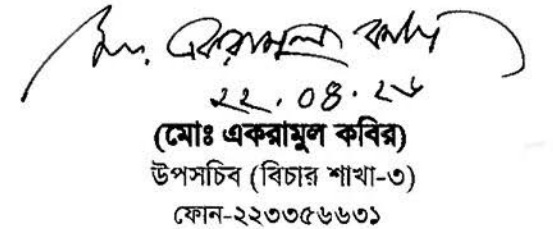 মোঃ একরামুল কবির
২২.০৪.২৬
(মোঃ একরামুল কবির)
উপসচিব (বিচার শাখা-৩)
ফোন-২২৩৩৫৬৬৩১